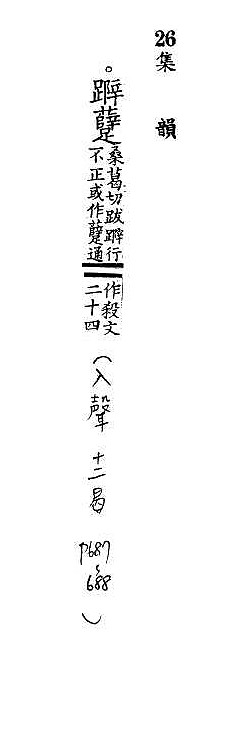 26集韻
。䟴躠桑葛切跋䟴行
不正或作躠通
作殺文
二十四
(入聲 十二曷 P687~688)